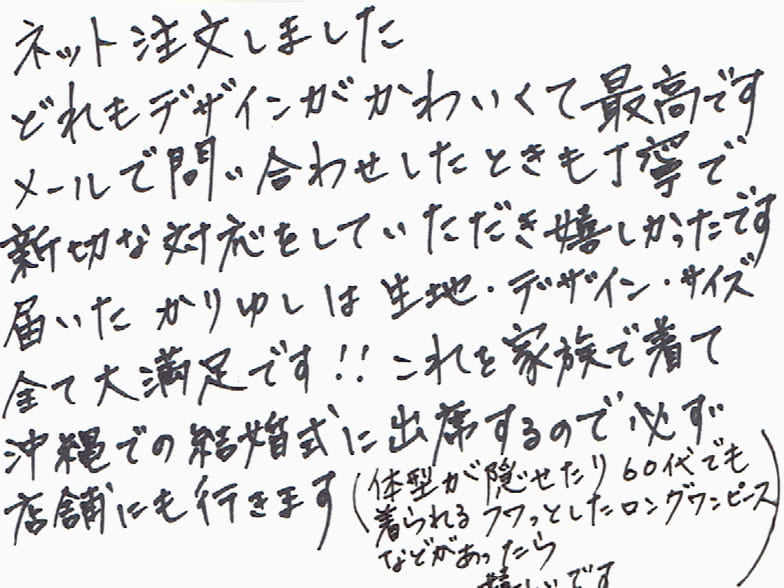 ネット注文しました
どれもデザインがかわいくて最高です
メールで問い合わせしたときも丁寧で
親切な対応をしていただき嬉しかったです
届いたかりゆしは生地・デザイン・サイズ
全て大満足です!!これを家族で着て
沖縄での結婚式に出席するので必ず
店舗にも行きます(体型が隠せたり60代でも
着られるフワっとしたロングワンピース
などがあったら
嬉しいです)